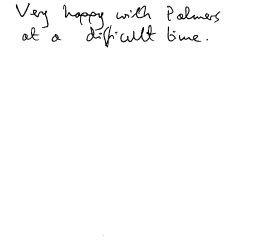 Very happy with Palmers
at a difficult time.